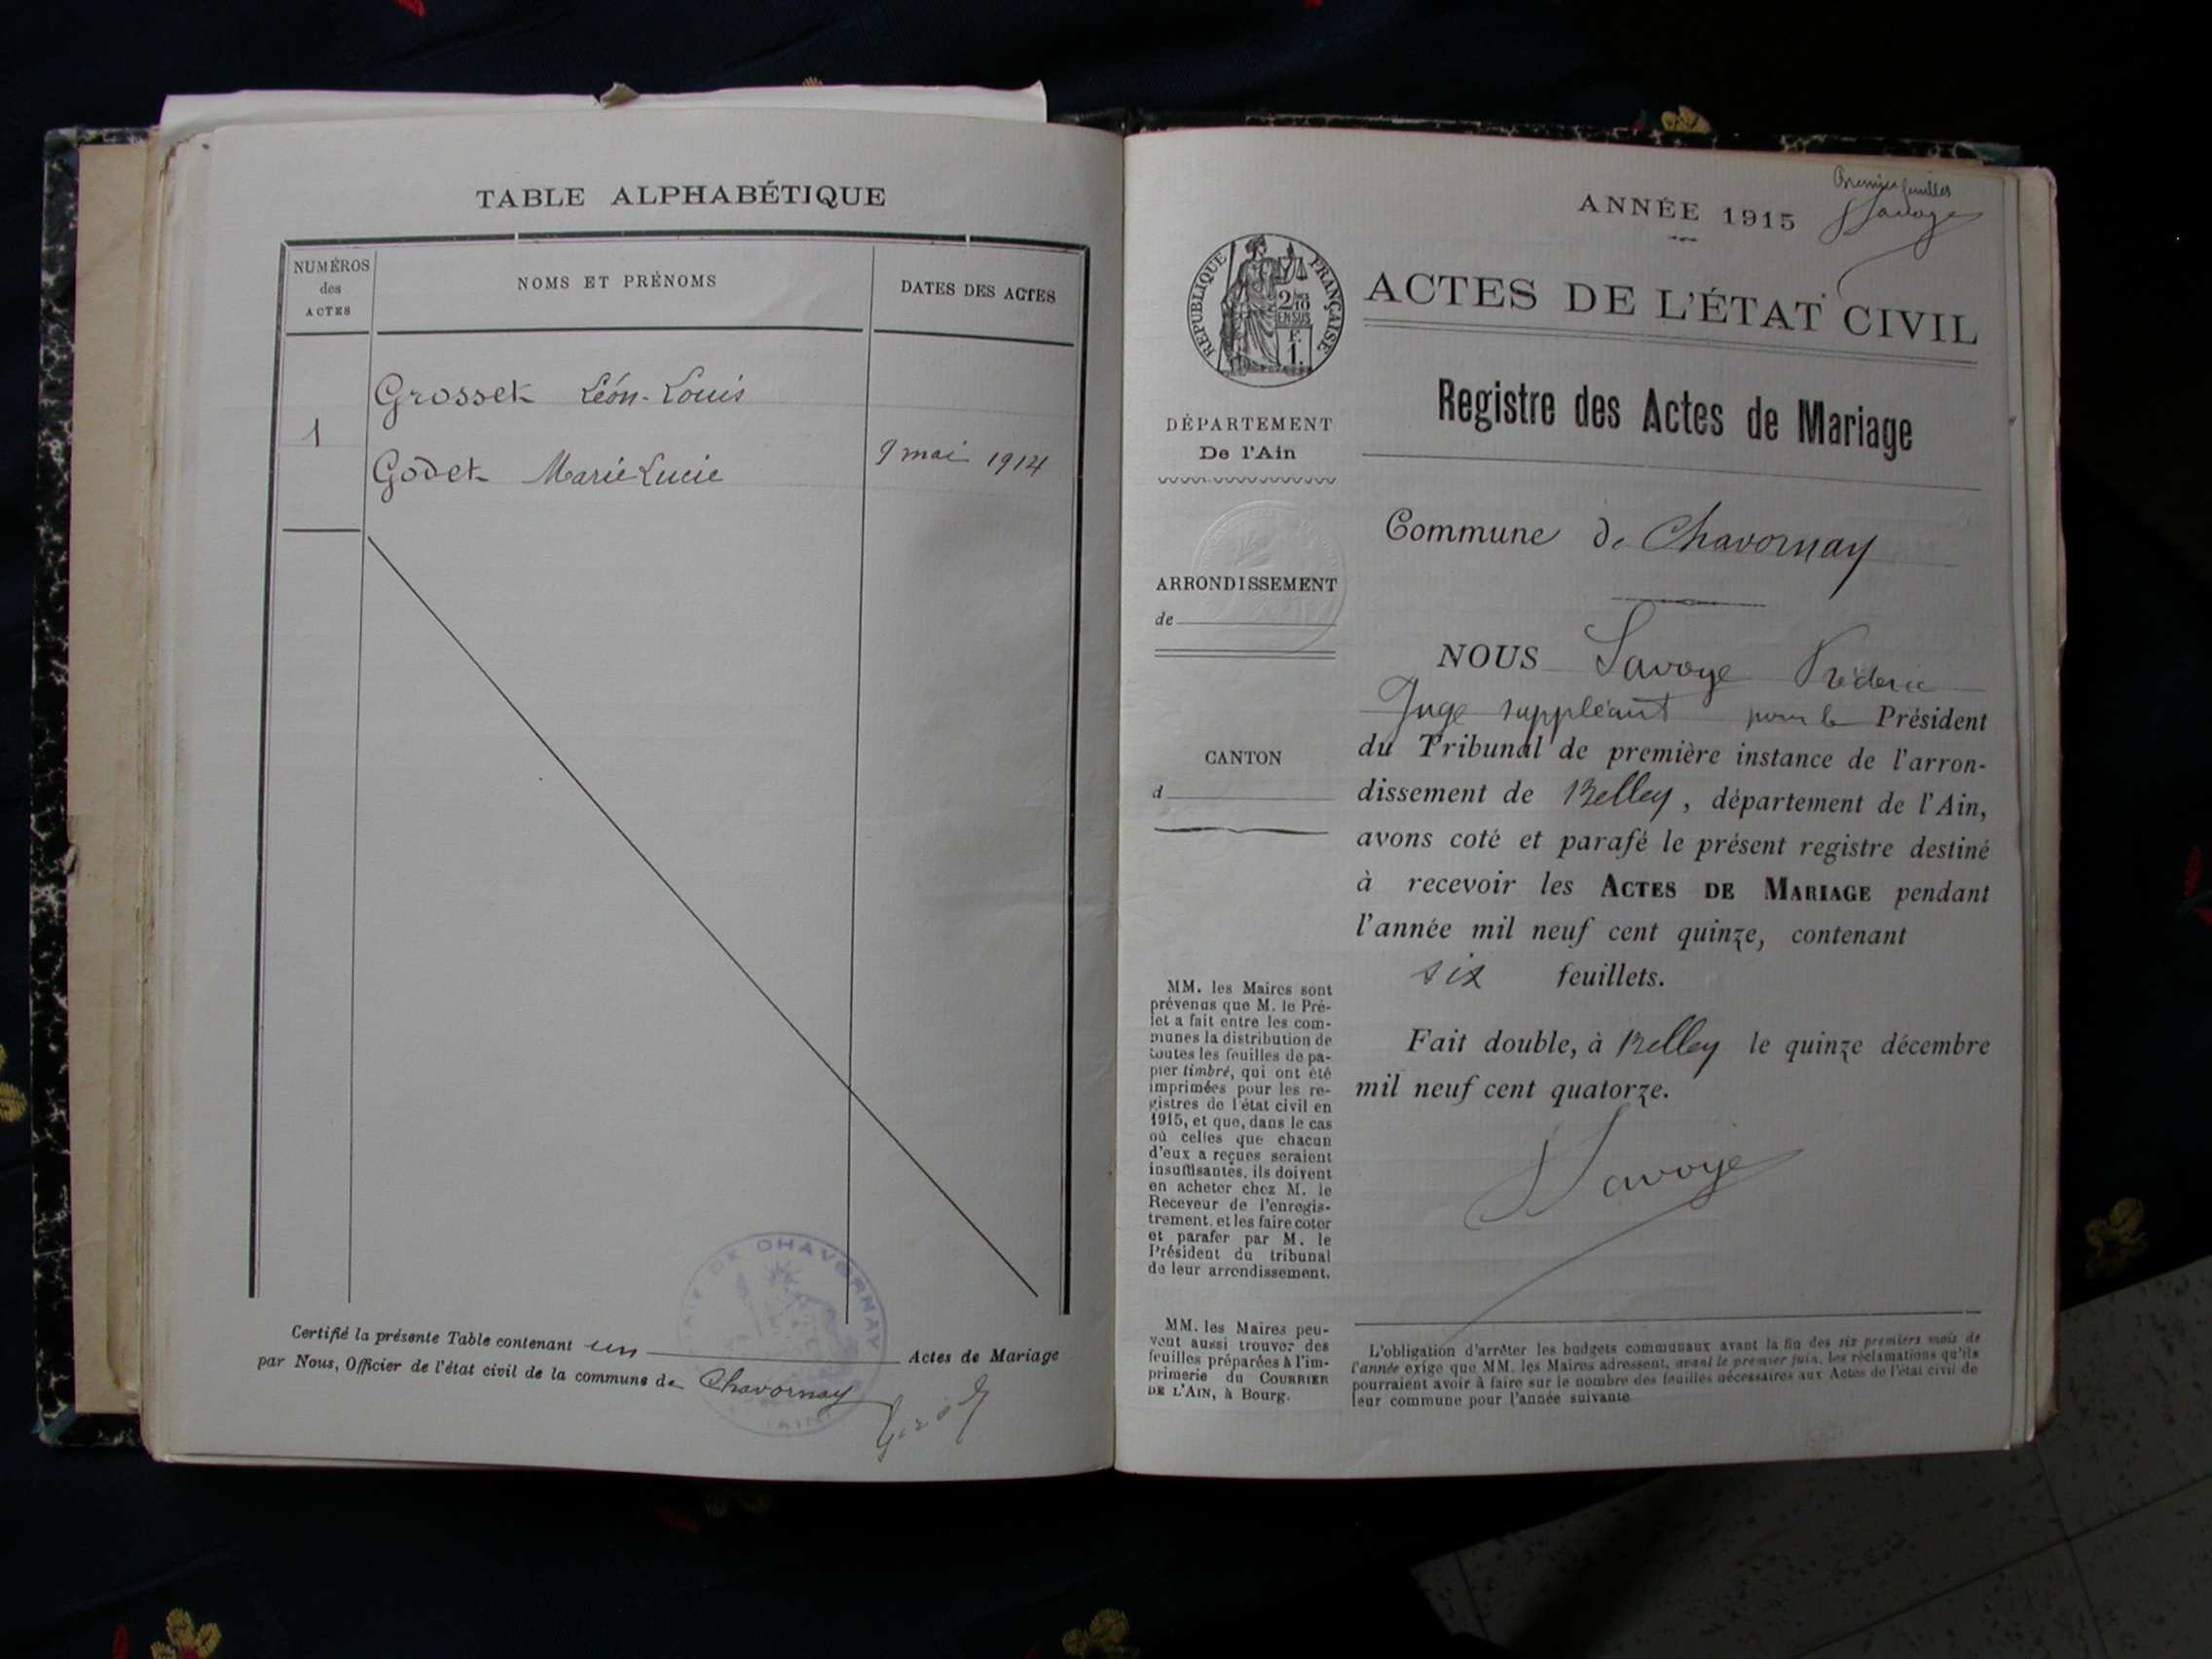 TABLE ALPHABÉTIQUE
NUMÉROS
des
ACTES
NOMS ET PRÉNOMS
DATES DES ACTES
Grosset Léon-Louis
1
Godet Marie Lucie
9 mai 1914
Certifié la présente Table contenant un Actes de Mariage
par Nous, Officier de l'état civil de la commune de Chavornay
MAIRIE DE CHAVORNAY
(AIN)
Premier feuillet
Savoye
ANNÉE 1915
RÉPUBLIQUE FRANÇAISE
2/10
EN SUS
F.
1.
ACTES DE L'ÉTAT CIVIL
Registre des Actes de Mariage
DÉPARTEMENT
De l'Ain
ARRONDISSEMENT
de
CANTON
d
MM. les Maires sont
prévenus que M. le Pré-
fet a fait entre les com-
munes la distribution de
toutes les feuilles de pa-
pier timbré, qui ont été
imprimées pour les re-
gistres de l'état civil en
1915, et que, dans le cas
où celles que chacun
d'eux a reçues seraient
insuffisantes, ils doivent
en acheter chez M. le
Receveur de l'enregis-
trement, et les faire coter
et parafer par M. le
Président du tribunal
de leur arrondissement.
MM. les Maires peu-
vent aussi trouver des
feuilles préparées à l'im-
primerie du COURRIER
DE L'AIN, à Bourg.
Commune de Chavornay
NOUS Savoye Frédéric
Juge suppléant pour le Président
du Tribunal de première instance de l'arron-
dissement de Belley, département de l'Ain,
avons coté et parafé le présent registre destiné
à recevoir les ACTES DE MARIAGE pendant
l'année mil neuf cent quinze, contenant
six feuillets.
Fait double, à Belley le quinze décembre
mil neuf cent quatorze.
Savoye
L'obligation d'arrêter les budgets communaux avant la fin des six premiers mois de
l'année exige que MM. les Maires adressent, avant le premier juin, les réclamations qu'ils
pourraient avoir à faire sur le nombre des feuilles nécessaires aux Actes de l'état civil de
leur commune pour l'année suivante